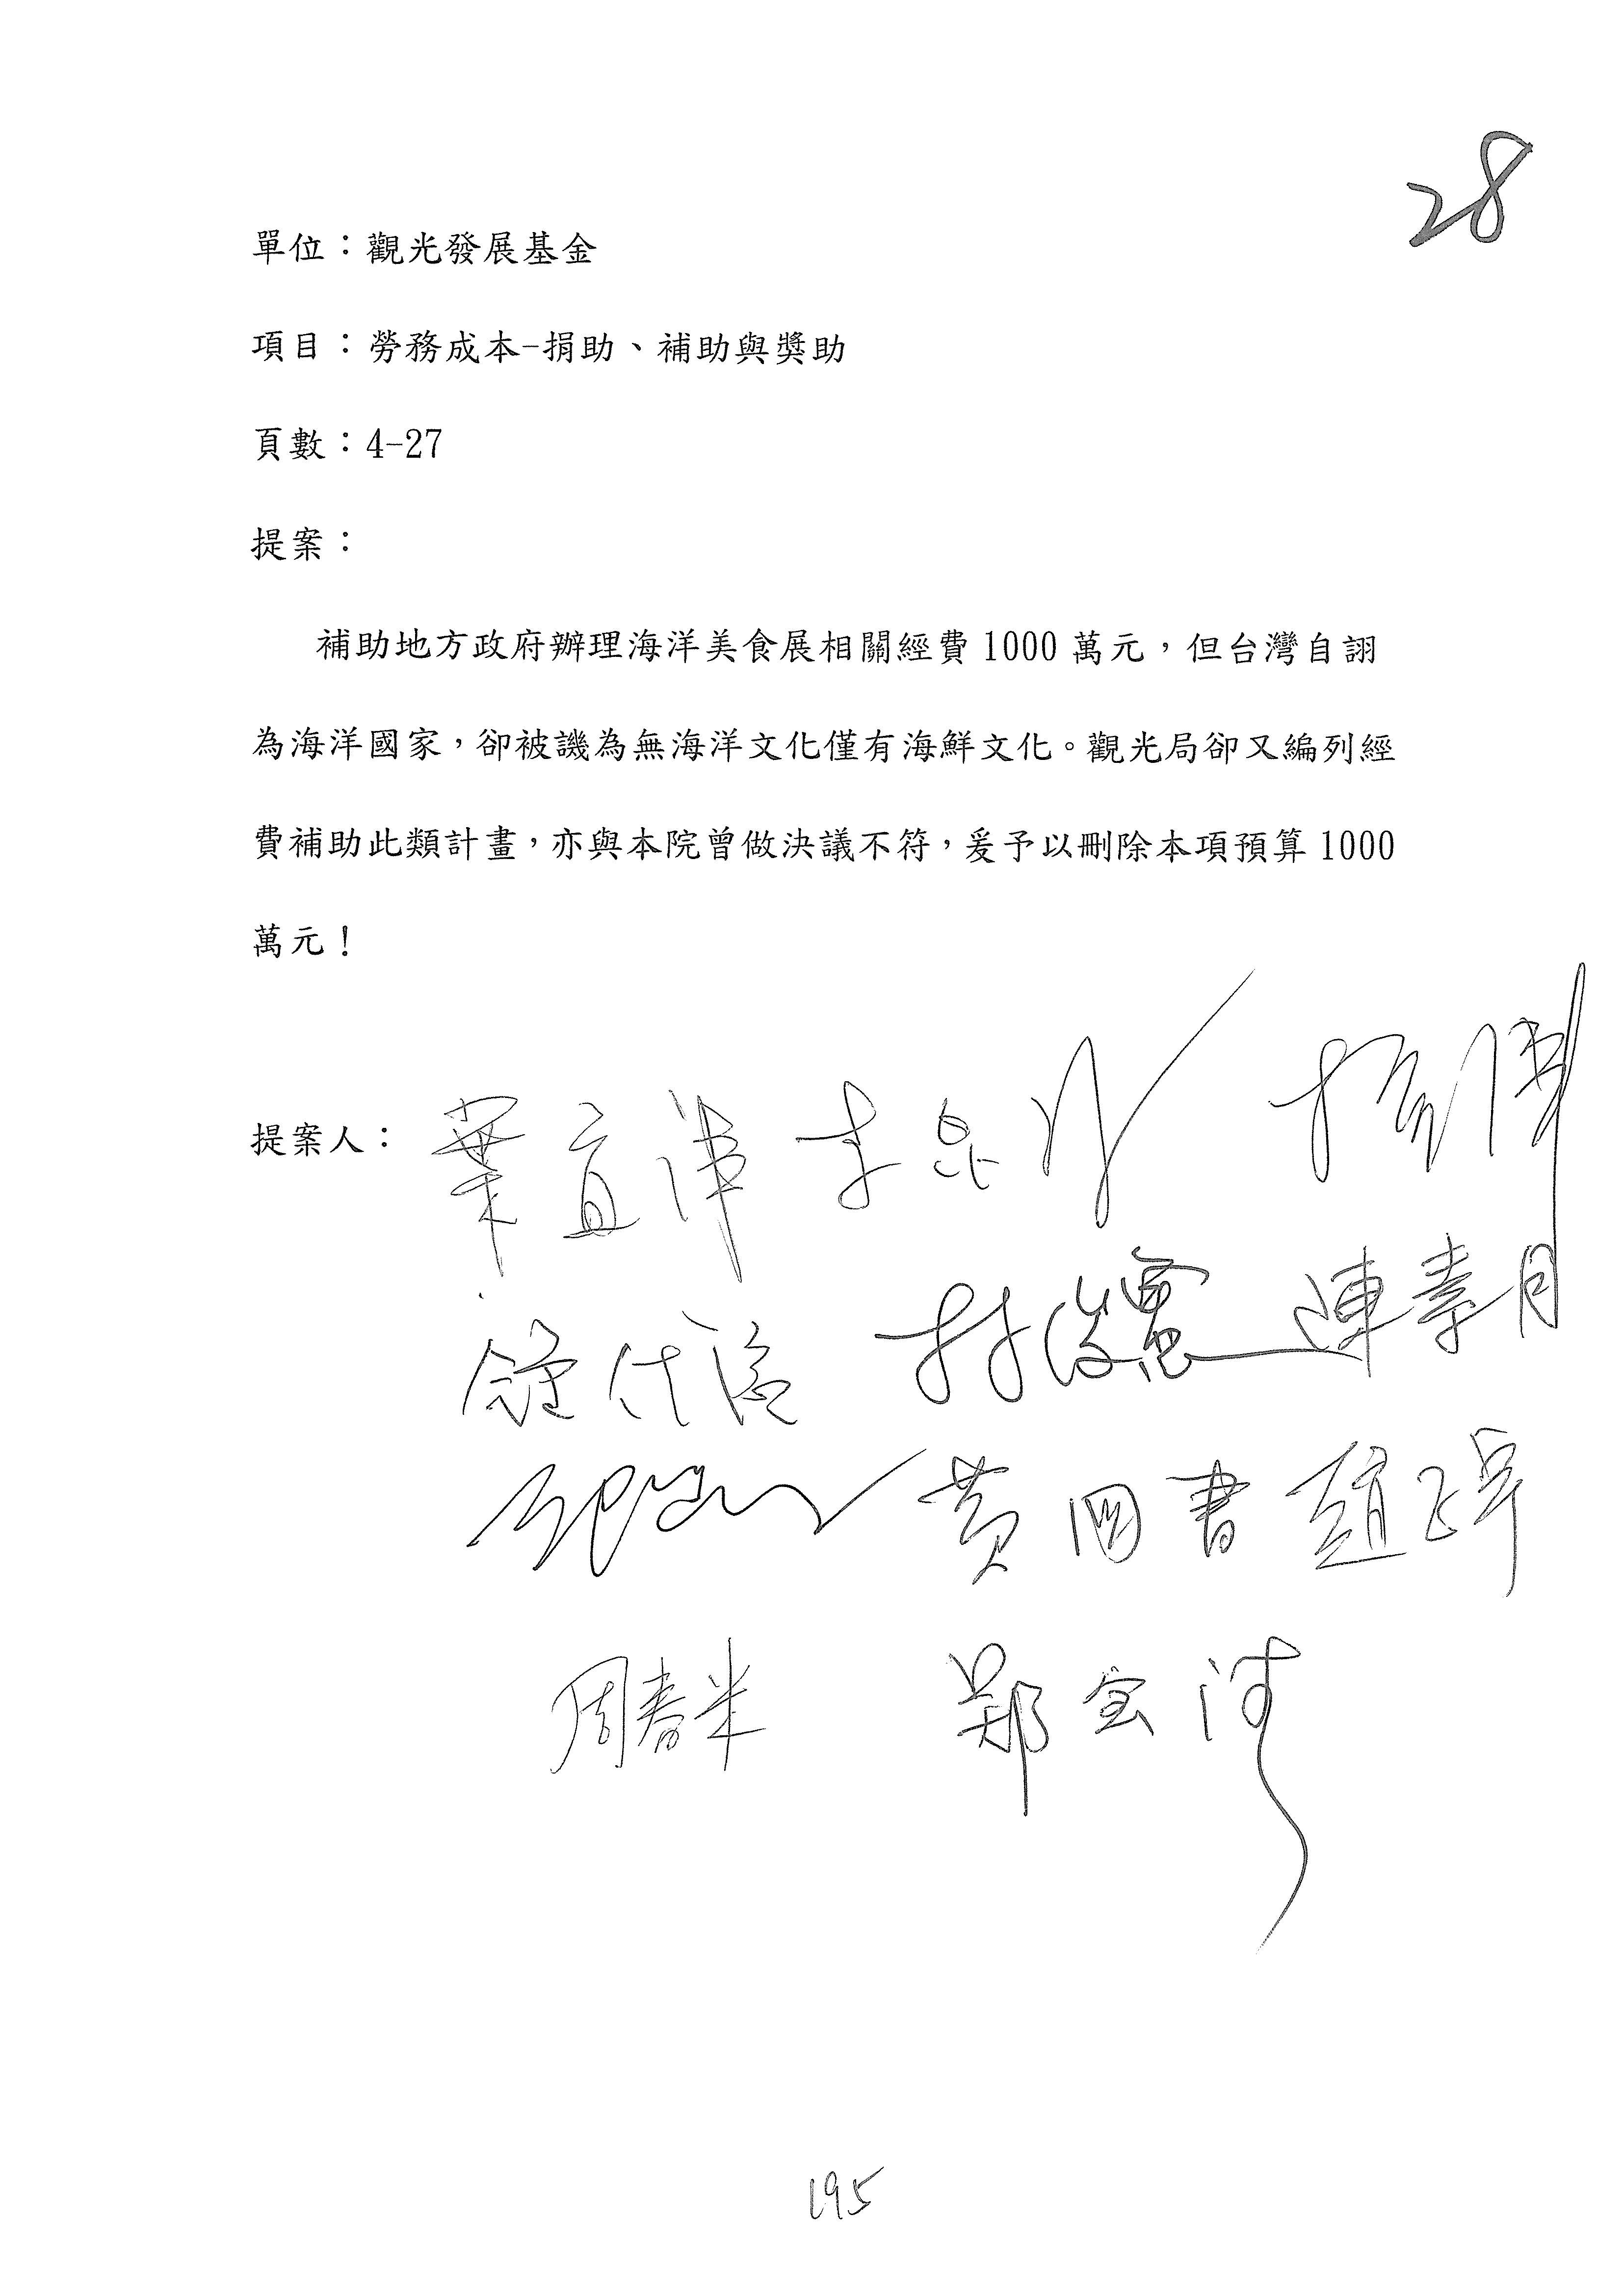 28
單位：觀光發展基金
項目：勞務成本-捐助、補助與獎助
頁數：4-27
提案：
補助地方政府辦理海洋美食展相關經費1000萬元，但台灣自詡
為海洋國家，卻被譏為無海洋文化僅有海鮮文化。觀光局卻又編列經
費補助此類計畫，亦與本院曾做決議不符，爰予以刪除本項預算1000
萬元！
提案人：葉宜津 李昆澤
林俊憲 陳素月
黃國書 趙正宇
周春米 鄭寶清
195